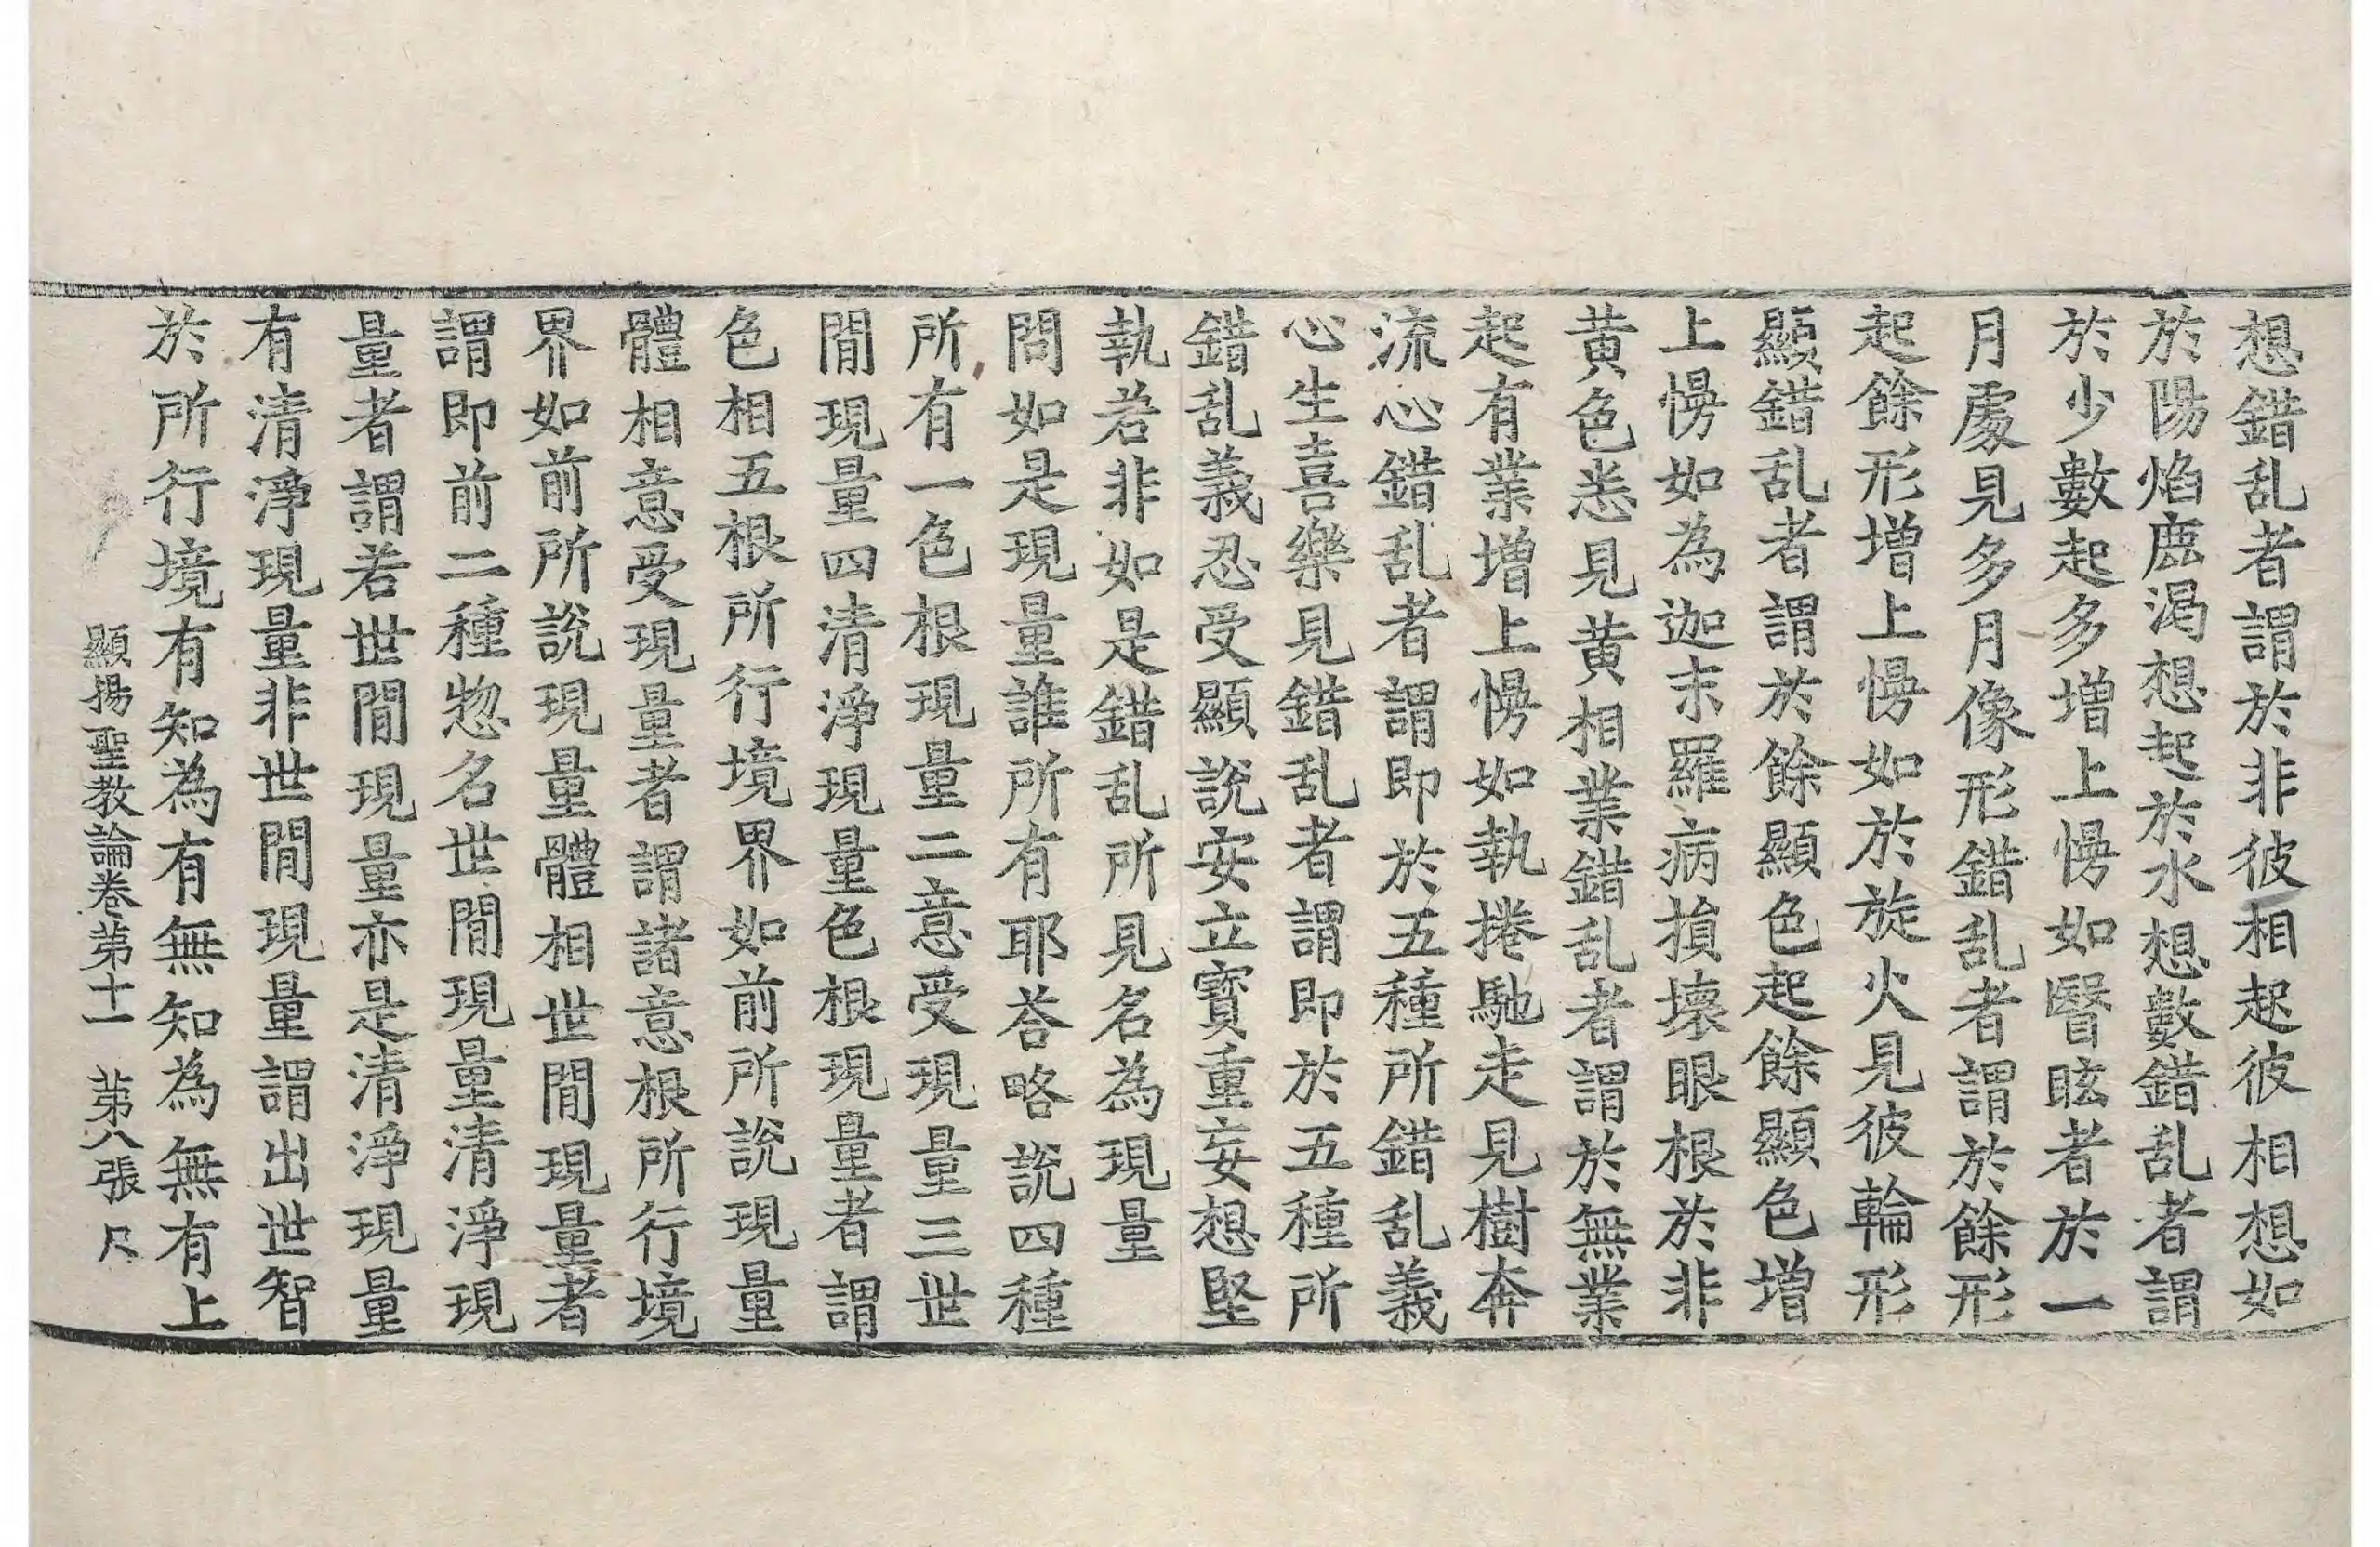 想錯乱者謂於非彼相起彼相想如
於陽焰鹿渴想起於水想數錯乱者謂
於少數起多增上慢如瞖眩者於一
月處見多月像形錯乱者謂於餘形
起餘形增上慢如於旋火見彼輪形
顯錯乱者謂於餘顯色起餘顯色增
上慢如為迦末羅病損壞眼根於非
黄色悉見黄相業錯乱者謂於無業
起有業增上慢如執捲馳走見樹奔
流心錯乱者謂即於五種所錯乱義
心生喜樂見錯乱者謂即於五種所
錯乱義忍受顯說安立寶重妄想堅
執若非如是錯乱所見名為現量
問如是現量誰所有耶荅略說四種
所有一色根現量二意受現量三世
間現量四清淨現量色根現量者謂
色相五根所行境界如前所說現量
體相意受現量者謂諸意根所行境
界如前所說現量體相世間現量者
謂即前二種惣名世間現量清淨現
量者謂若世間現量亦是清淨現量
有清淨現量非世間現量謂出世智
於所行境有知為有無知為無有上
顯揚聖教論卷苐十一 苐八張 尺